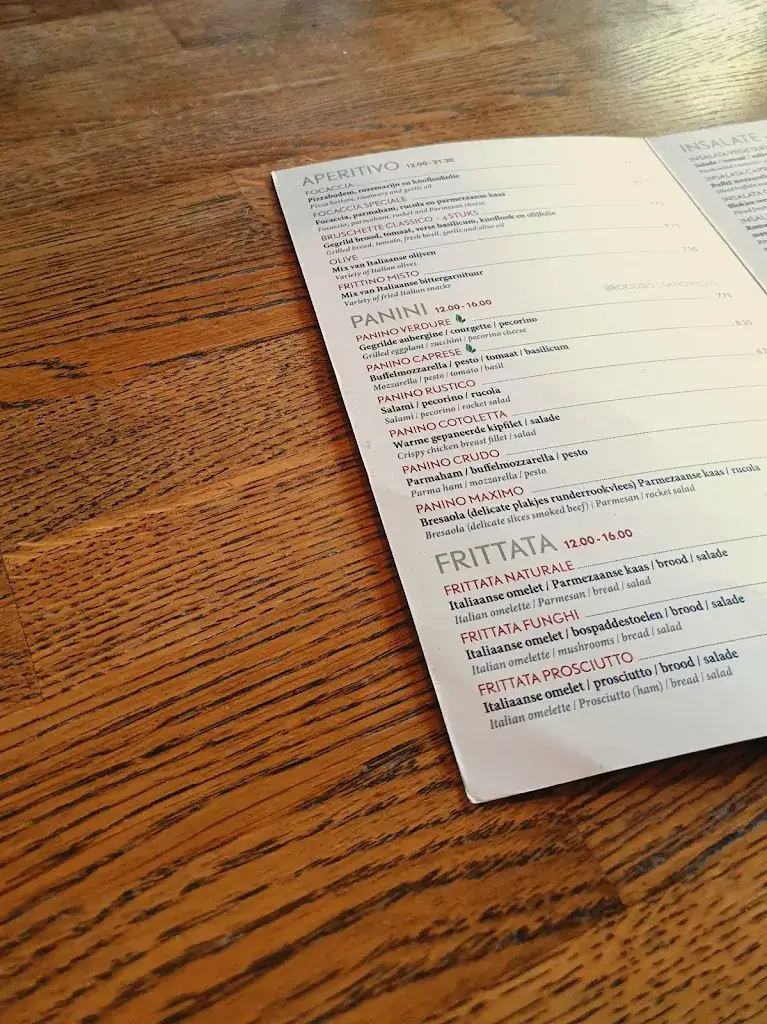 APERITIVO 12.00 - 21.30
FOCACCIA
Pizzabodem, rozemarijn en knoflookolie
Pizza bottom, rosemary and garlic oil
FOCACCIA SPECIALE
Focaccia, parmaham, rucola en parmezaanse kaas
Focaccia, parmaham, rocket and Parmesan cheese
BRUSCHETTE CLASSICO - 4 STUKS
Gegrild brood, tomaat, verse basilicum, knoflook en olijfolie
Grilled bread, tomato, fresh basil, garlic and olive oil
OLIVE 5.75
Mix van Italiaanse olijven
Variety of Italian olives
FRITTINO MISTO 7.50
Mix van Italiaanse bittergarnituur
Variety of fried Italian snacks
PANINI 12.00 - 16.00 BROODJES | SANDWICHES
PANINO VERDURE 7.75
Gegrilde aubergine / courgette / pecorino
Grilled eggplant / zucchini / pecorino cheese
PANINO CAPRESE 8.25
Buffelmozzarella / pesto / tomaat / basilicum
Mozzarella / pesto / tomato / basil
PANINO RUSTICO
Salami / pecorino / rucola
Salami / pecorino / rocket salad
PANINO COTOLETTA
Warme gepaneerde kipfilet / salade
Crispy chicken breast fillet / salad
PANINO CRUDO
Parmaham / buffelmozzarella / pesto
Parma ham / mozzarella / pesto
PANINO MAXIMO
Bresaola (delicate plakjes runderrookvlees) Parmezaanse kaas / rucola
Bresaola (delicate slices smoked beef) / Parmesan / rocket salad
FRITTATA 12.00 - 16.00
FRITTATA NATURALE
Italiaanse omelet / Parmezaanse kaas / brood / salade
Italian omelette / Parmesan / bread / salad
FRITTATA FUNGHI
Italiaanse omelet / bospaddestoelen / brood / salade
Italian omelette / mushrooms / bread / salad
FRITTATA PROSCIUTTO
Italiaanse omelet / prosciutto / brood / salade
Italian omelette / Prosciutto (ham) / bread / salad
INSALATE
INSALATA
Salade / tomaat
INSALATA